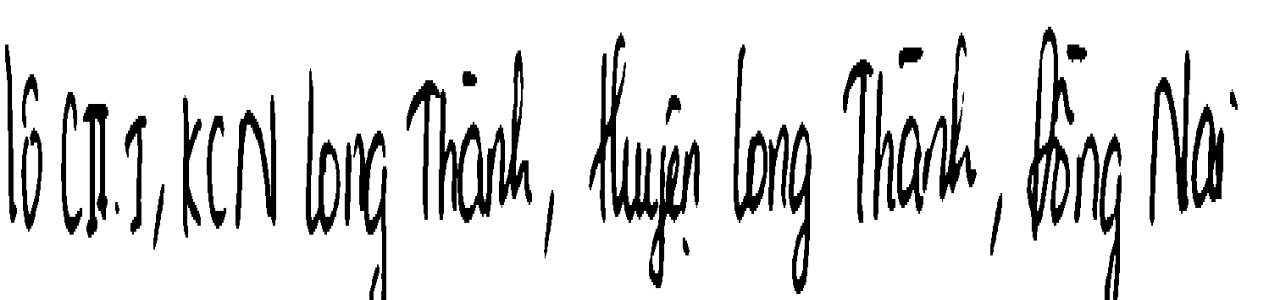 lô CII.I, KCN Long Thành, Huyện Long Thành, Đồng Nai